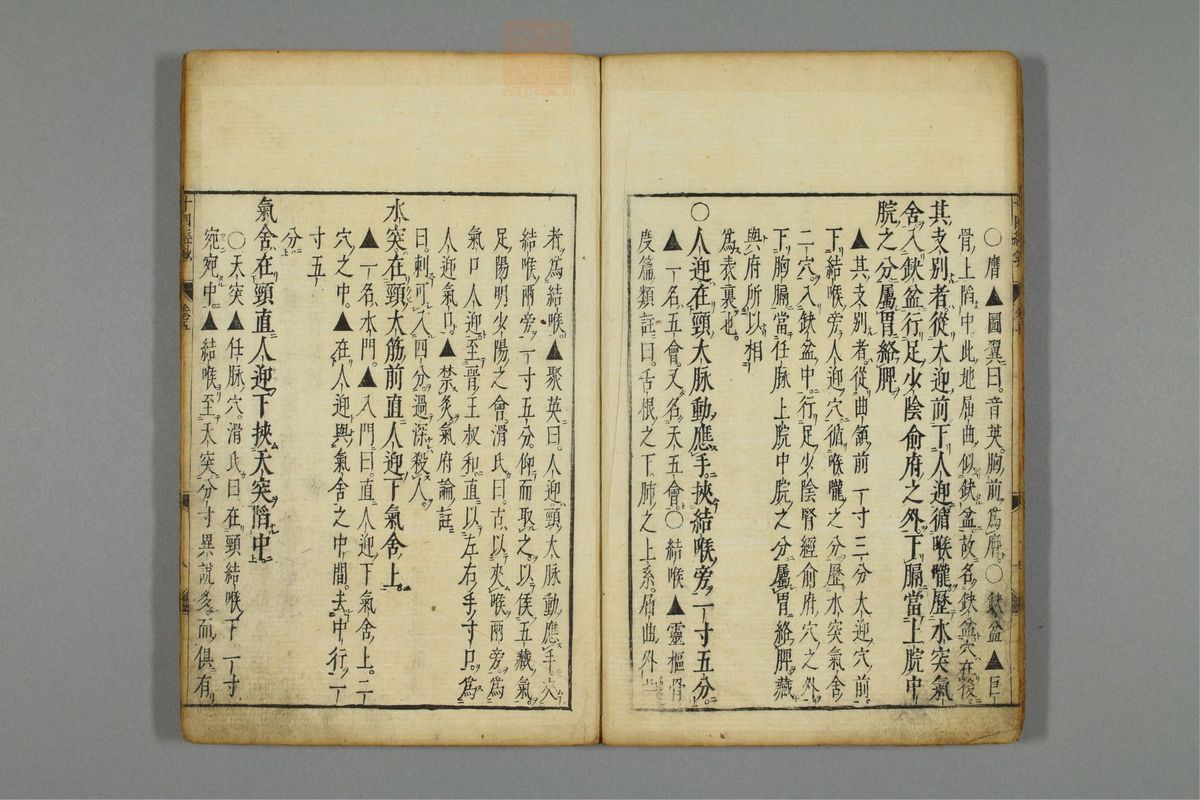 ○膺▲圖翼曰音英胸前爲膺○缺盆▲巨
骨上陷中此地屈曲似缺盆故名缺盆穴在後
其支別者從大迎前下人迎循喉嚨歷水突氣
舍入缺盆行足少陰俞府之外下膈當上脘中
脘之分屬胃絡脾
▲其支別者從曲頷前一寸三分大迎穴前
下結喉旁人迎穴循喉嚨之分歷水突氣舍
二穴入缺盆中行足少陰腎經俞府穴之外
下胸膈當任脉上脘中脘之分屬胃絡脾藏
與府所以相
爲表裏也
○人迎在頸大脉動應手挾結喉旁一寸五分
▲一名五會又名天五會○結喉▲靈樞骨
度篇類註曰舌根之下肺之上系屈曲外
者爲結喉▲聚英曰人迎頸大脉動應手夾
結喉兩旁一寸五分仰而取之以候五藏氣
足陽明少陽之會滑氏曰古以夾喉兩旁爲
氣口人迎至晉王叔和直以左右手寸口爲
人迎氣口▲禁灸氣府論註
曰刺可入四分過深殺人
水突在頸大筋前直人迎下氣舍上
▲一名水門▲入門曰直人迎下氣舍上二
穴之中▲在人迎與氣舍之中間去中行一
寸五
分
氣舍在頸直人迎下挾天突陷中
○天突▲任脉穴滑氏曰在頸結喉下一寸
宛宛中▲結喉至天突分寸異說多而俱有